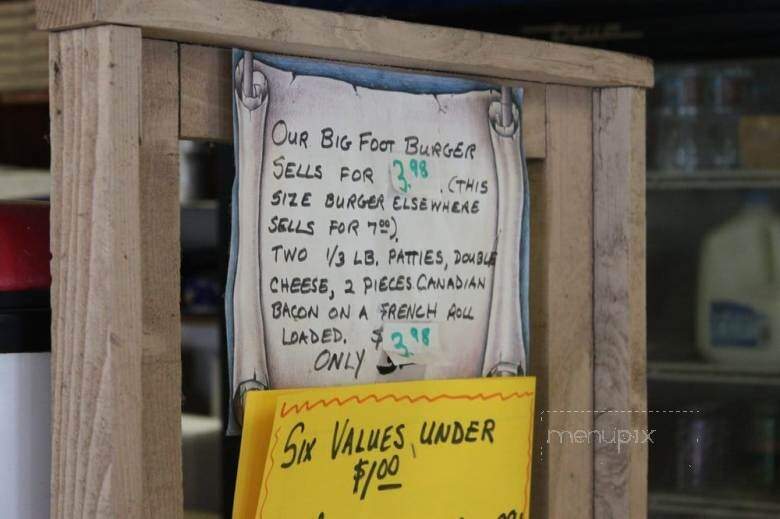 OUR BIG FOOT BURGER
SELLS FOR 3.98 . (THIS
SIZE BURGER ELSEWHERE
SELLS FOR 7.00).
TWO 1/3 LB. PATTIES, DOUBLE
CHEESE, 2 PIECES CANADIAN
BACON ON A FRENCH ROLL
LOADED. $3.98
ONLY
SIX VALUES UNDER
$1.00
menupix